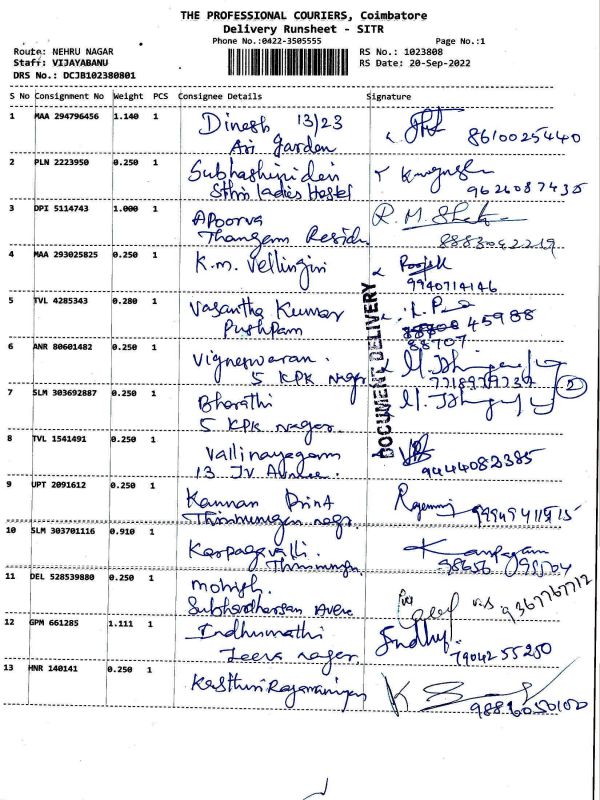 THE PROFESSIONAL COURIERS, Coimbatore
Delivery Runsheet - SITR
Phone No.:0422-3505555 Page No.:1
Route: NEHRU NAGAR RS No.: 1023808
Staff: VIJAYABANU RS Date: 20-Sep-2022
DRS No.: DCJB102380801
S No Consignment No Weight PCS Consignee Details Signature
1 MAA 294796456 1.140 1 Dinesh 13/23 8610025440
Air Garden
2 PLN 2223950 0.250 1 Subhashini devi
Sthri ladies Hostel 9626087435
3 DPI 5114743 1.000 1 Apoorva R.M.
Thangam 8883042219
4 MAA 293025825 0.250 1 K.m. Vellingiri
9940714146
5 TVL 4285343 0.280 1 Vasantha Kumar 45988
Pushpam 88707
DOCUMENT DELIVERY
6 ANR 80601482 0.250 1 Vigneswaran.
5 KPK nagar
7 SLM 303692887 0.250 1 Bharathi
5 KPK nagar
8 TVL 1541491 0.250 1 Vallinayagam
13 JV Avenue. 9444082385
9 UPT 2091612 0.250 1 Kannan Print
10 SLM 303701116 0.910 1 Karpagavalli.
11 DEL 528539880 0.250 1 mohish. 9367767712
12 GPM 661285 1.111 1 Indhumathi Indhu.
Jeeva nagar. 7904255250
13 HNR 140141 0.250 1
9886050100